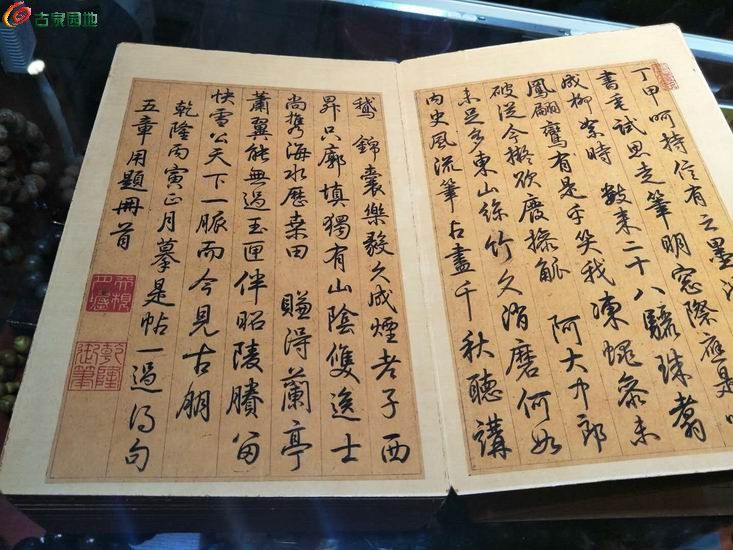 古泉园地
丁甲呵持信有之墨
書毫試思走筆明窓際應是
成柳絮時 數來二十八驪珠翥
鳳翩鸞有是乎笑我凍蠅參未
破從今擬欲廢操觚 阿大中郎
未足多東山絲竹久消磨何如
內史風流筆占盡千秋聽講
鵝 錦囊樂毅久成煙老子西
昇只廓填獨有山陰雙逸士
尚攜海水歷桑田 賺得蘭亭
蕭翼能無過玉匣伴昭陵賸留
快雪公天下一脈而今見古朋
乾隆丙寅正月摹是帖一過得句
五章用題冊首
乾隆御筆